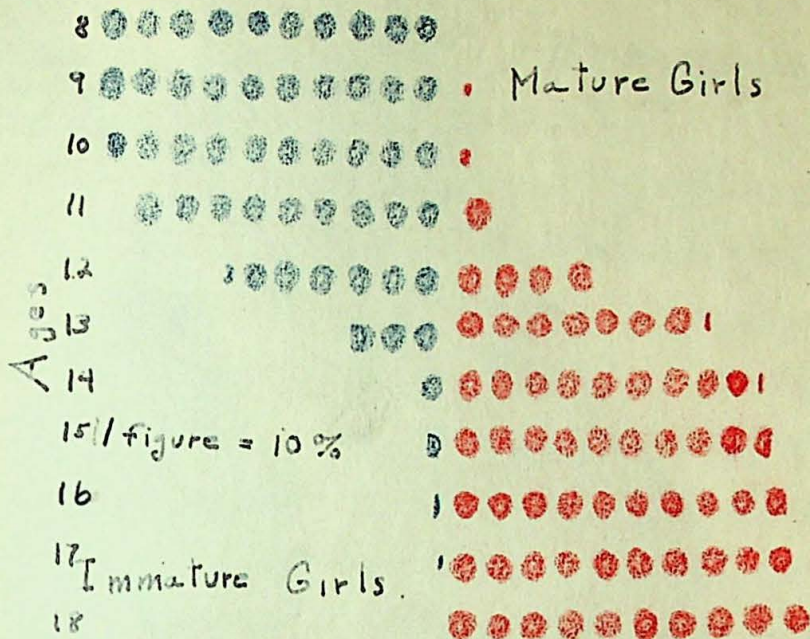 8
9 Mature Girls
10
11
12
13
Ages
14
15 1 figure = 10%
16
17
Immature Girls.
18